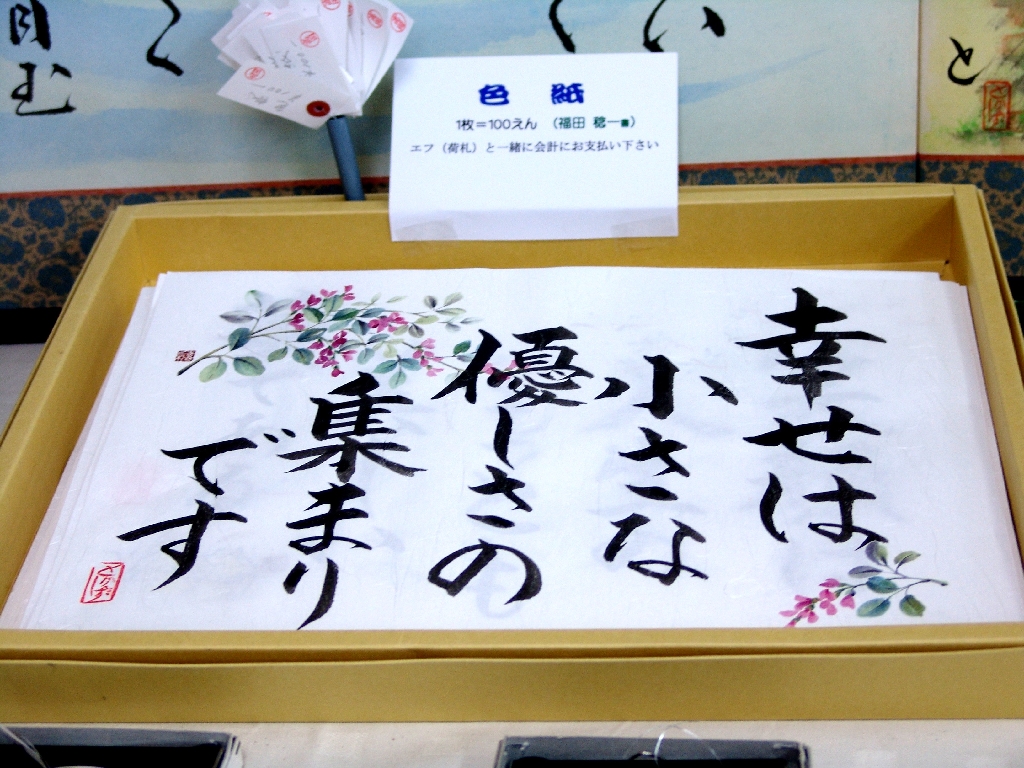 色 紙
1枚=100えん (福田 稔一書)
エフ(荷札)と一緒に会計にお支払い下さい
幸せは
小さな
優しさの
集まり
です
と